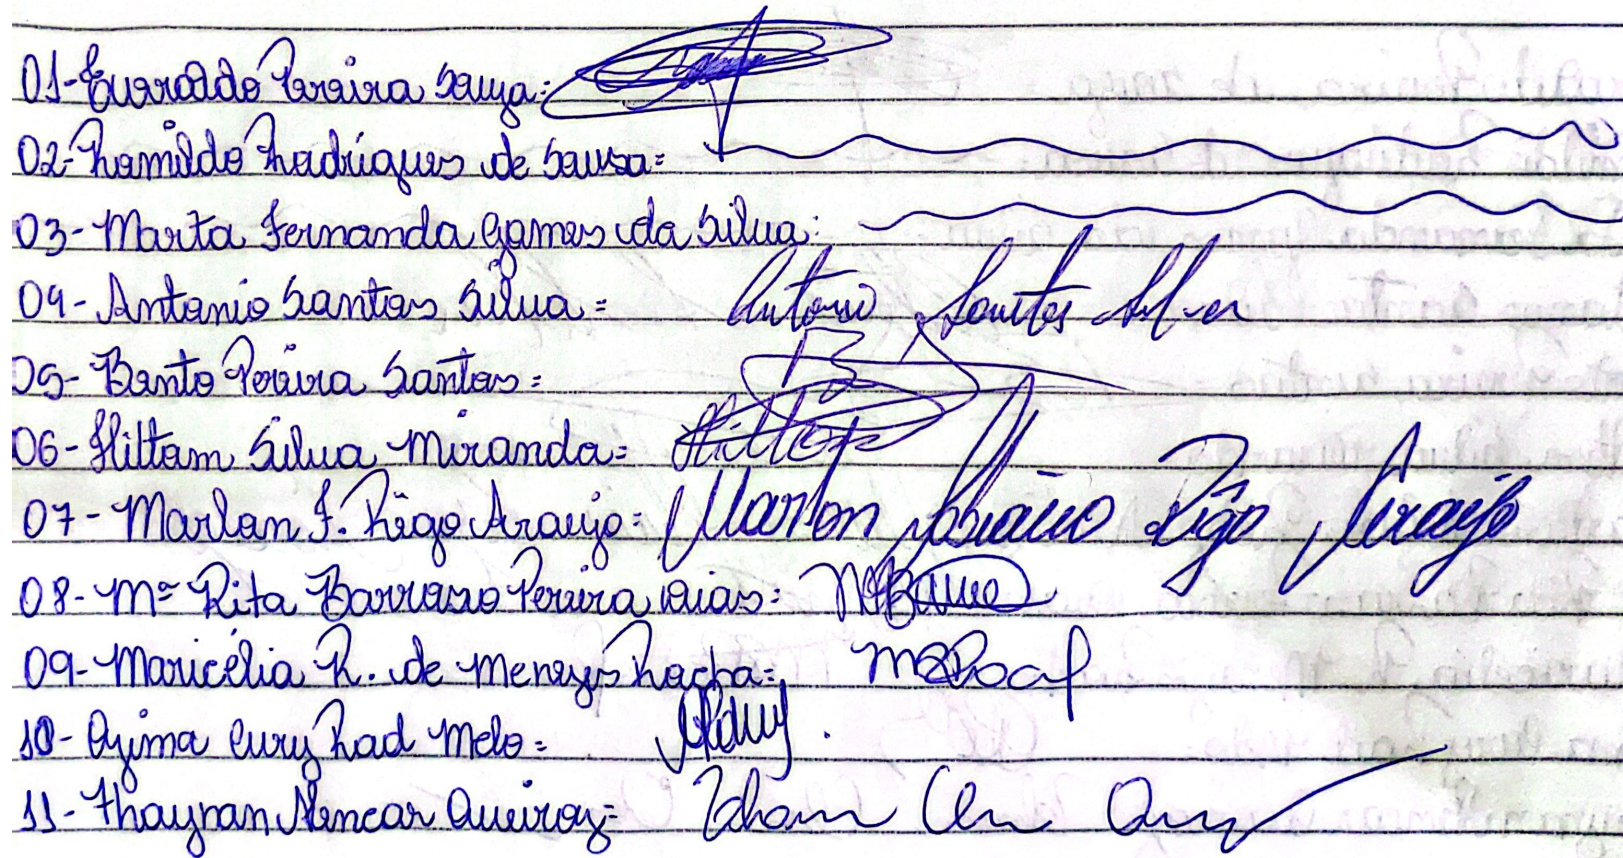 01- Everaldo Pereira Souza:
02- Romildo Rodrigues de Sousa:
03- Marta Fernanda Gomes da Silva:
04- Antonio Santos Silva: Antonio Santos Silva
05- Bento Pereira Santos:
06- Hiltom Silva Miranda: Hilton
07- Marlon F. Rêgo Araujo: Marlon Rêgo Araújo
08- Mª Rita Barroso Pereira Dias:
09- Maricélia R. de Menezes Rocha:
10- Ozima Cury Rad Melo:
11- Thaynan Alencar Queiroz: